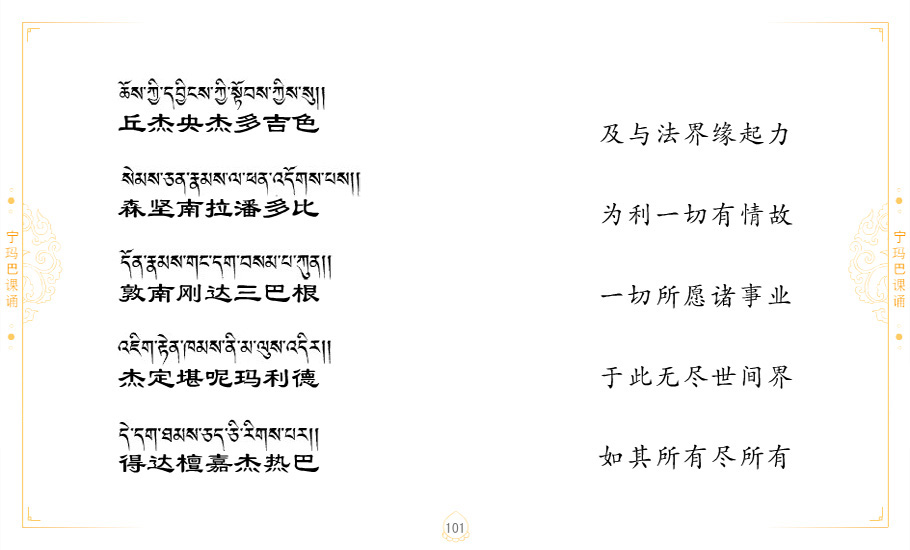 ཆོས་ཀྱི་དབྱིངས་ཀྱི་སྟོབས་ཀྱིས་སུ།།
丘杰央杰多吉色
སེམས་ཅན་རྣམས་ལ་ཕན་འདོགས་པས།།
森坚南拉潘多比
དོན་རྣམས་གང་དག་བསམ་པ་ཀུན།།
敦南刚达三巴根
འཇིག་རྟེན་ཁམས་ནི་མ་ལུས་འདིར།།
杰定堪呢玛利德
དེ་དག་ཐམས་ཅད་ཅི་རིགས་པར།།
得达檀嘉杰热巴
及与法界缘起力
为利一切有情故
一切所愿诸事业
于此无尽世间界
如其所有尽所有
宁玛巴课诵
宁玛巴课诵
101